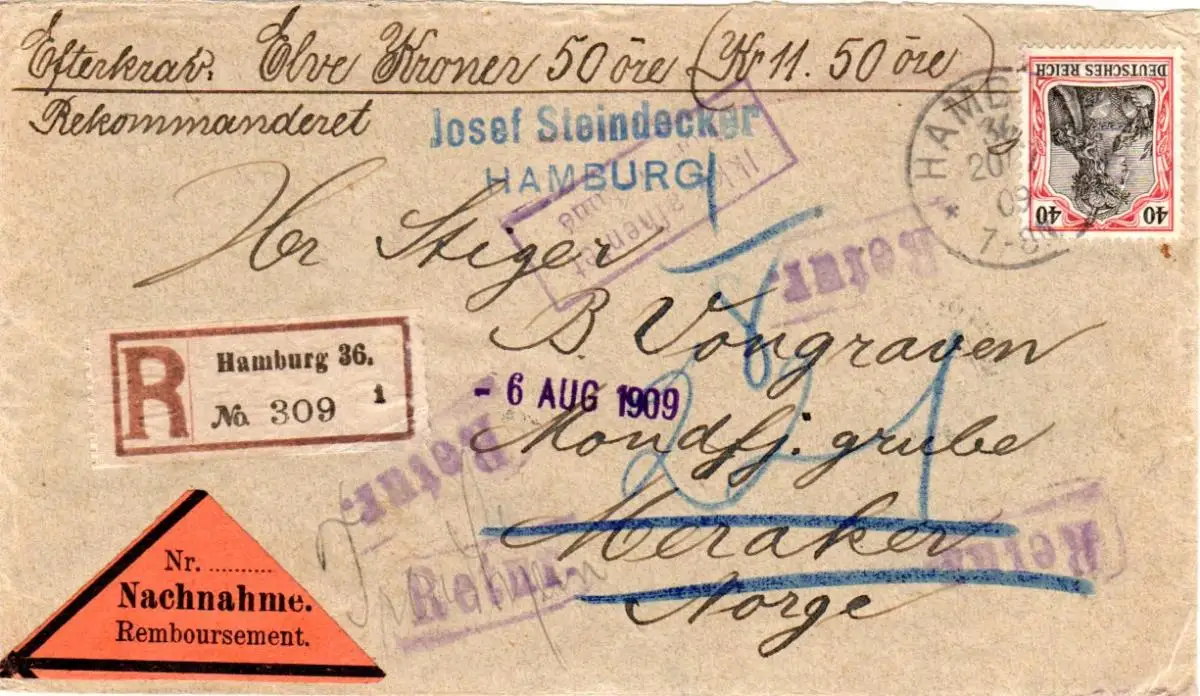 Efterkrav. Elve Kroner 50 öre (Kr 11. 50 öre)
Rekommanderet
Josef Steindecker
HAMBURG
DEUTSCHES REICH
40 40
HAMB
36
20
09
7-8N
Hr Stiger
B. Vongraven
Mondfj. grube
Meraker
Norge
Retur.
R
Hamburg 36.
No. 309 1
- 6 AUG 1909
Retur.
Retur.
Retur.
Nr. ..........
Nachnahme.
Remboursement.